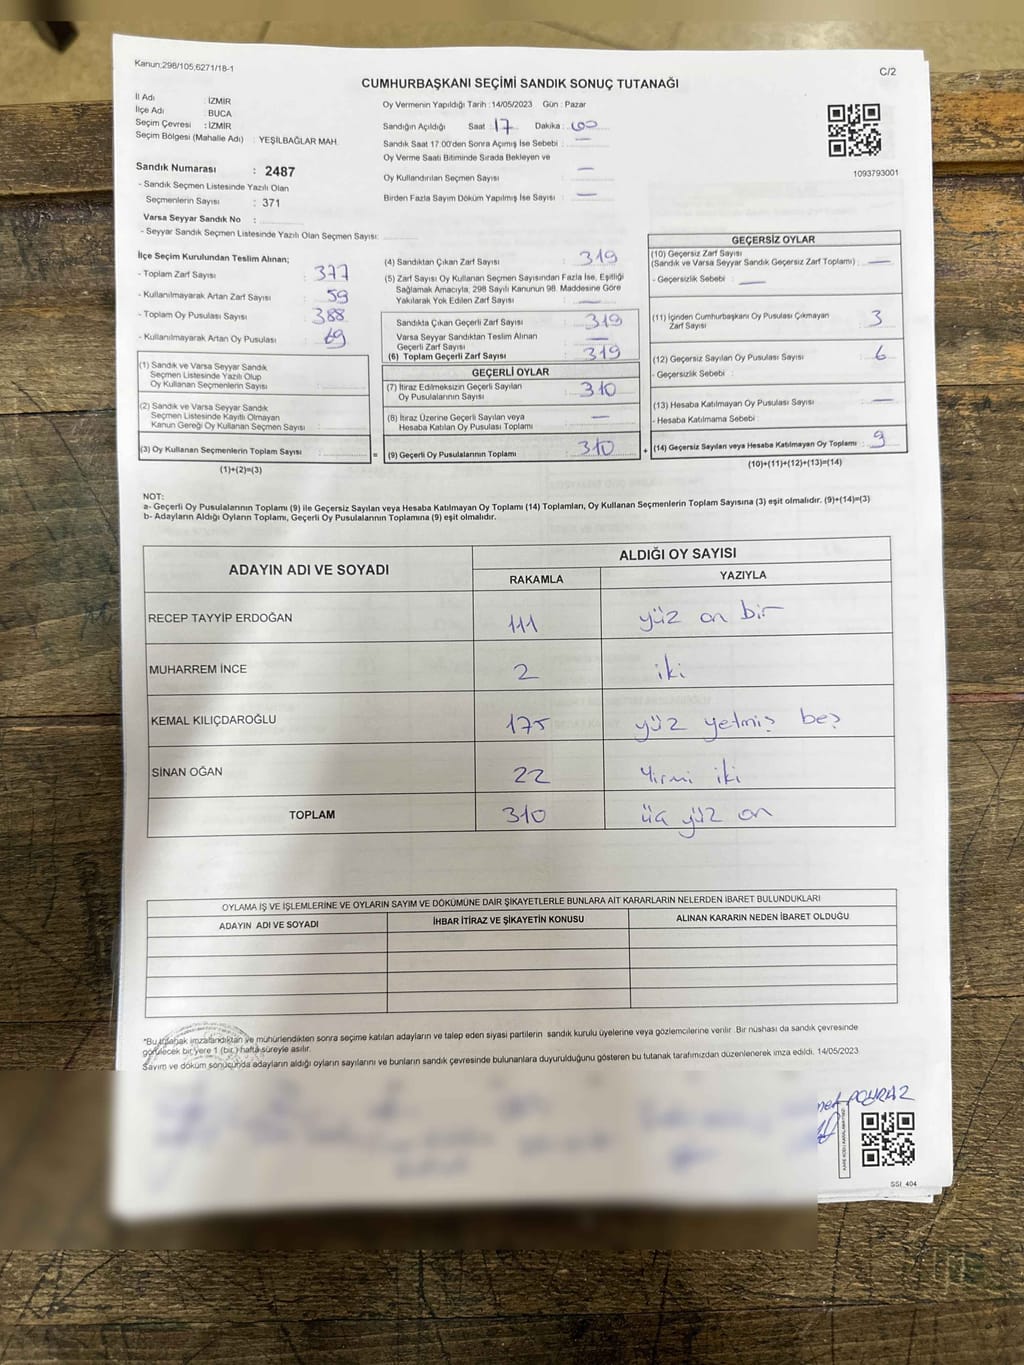 Kanun;298/105,6271/18-1
C/2
CUMHURBAŞKANI SEÇİMİ SANDIK SONUÇ TUTANAĞI
İl Adı : İZMİR
İlçe Adı : BUCA
Seçim Çevresi : İZMİR
Seçim Bölgesi (Mahalle Adı) : YEŞİLBAĞLAR MAH.
Sandık Numarası : 2487
- Sandık Seçmen Listesinde Yazılı Olan
Seçmenlerin Sayısı : 371
Varsa Seyyar Sandık No :
- Seyyar Sandık Seçmen Listesinde Yazılı Olan Seçmen Sayısı:
Oy Vermenin Yapıldığı Tarih : 14/05/2023 Gün : Pazar
Sandığın Açıldığı Saat : 17 Dakika : 00
Sandık Saat 17.00'den Sonra Açımış İse Sebebi : —
Oy Verme Saati Bitiminde Sırada Bekleyen ve
Oy Kullandırılan Seçmen Sayısı : —
Birden Fazla Sayım Döküm Yapılmış İse Sayısı : —
1093793001
İlçe Seçim Kurulundan Teslim Alınan;
- Toplam Zarf Sayısı : 377
- Kullanılmayarak Artan Zarf Sayısı : 59
- Toplam Oy Pusulası Sayısı : 388
- Kullanılmayarak Artan Oy Pusulası : 69
(1) Sandık ve Varsa Seyyar Sandık
Seçmen Listesinde Yazılı Olup
Oy Kullanan Seçmenlerin Sayısı :
(2) Sandık ve Varsa Seyyar Sandık
Seçmen Listesinde Kayıtlı Olmayan
Kanun Gereği Oy Kullanan Seçmen Sayısı :
(3) Oy Kullanan Seçmenlerin Toplam Sayısı :
(1)+(2)=(3)
(4) Sandıktan Çıkan Zarf Sayısı : 319
(5) Zarf Sayısı Oy Kullanan Seçmen Sayısından Fazla İse, Eşitliği
Sağlamak Amacıyla, 298 Sayılı Kanunun 98. Maddesine Göre
Yakılarak Yok Edilen Zarf Sayısı : —
Sandıkta Çıkan Geçerli Zarf Sayısı : 319
Varsa Seyyar Sandıktan Teslim Alınan
Geçerli Zarf Sayısı : —
(6) Toplam Geçerli Zarf Sayısı : 319
GEÇERLİ OYLAR
(7) İtiraz Edilmeksizin Geçerli Sayılan
Oy Pusulalarının Sayısı : 310
(8) İtiraz Üzerine Geçerli Sayılan veya
Hesaba Katılan Oy Pusulası Toplamı : —
= (9) Geçerli Oy Pusulalarının Toplamı : 310 +
GEÇERSİZ OYLAR
(10) Geçersiz Zarf Sayısı
(Sandık ve Varsa Seyyar Sandık Geçersiz Zarf Toplamı) : —
- Geçersizlik Sebebi : —
(11) İçinden Cumhurbaşkanı Oy Pusulası Çıkmayan
Zarf Sayısı : 3
(12) Geçersiz Sayılan Oy Pusulası Sayısı : 6
- Geçersizlik Sebebi :
(13) Hesaba Katılmayan Oy Pusulası Sayısı : —
- Hesaba Katılmama Sebebi :
(14) Geçersiz Sayılan veya Hesaba Katılmayan Oy Toplamı : 9
(10)+(11)+(12)+(13)=(14)
NOT:
a- Geçerli Oy Pusulalarının Toplamı (9) ile Geçersiz Sayılan veya Hesaba Katılmayan Oy Toplamı (14) Toplamları, Oy Kullanan Seçmenlerin Toplam Sayısına (3) eşit olmalıdır. (9)+(14)=(3)
b- Adayların Aldığı Oyların Toplamı, Geçerli Oy Pusulalarının Toplamına (9) eşit olmalıdır.
ADAYIN ADI VE SOYADI ALDIĞI OY SAYISI
RAKAMLA YAZIYLA
RECEP TAYYİP ERDOĞAN 111 yüz on bir
MUHARREM İNCE 2 iki
KEMAL KILIÇDAROĞLU 175 yüz yetmiş beş
SİNAN OĞAN 22 yirmi iki
TOPLAM 310 üç yüz on
OYLAMA İŞ VE İŞLEMLERİNE VE OYLARIN SAYIM VE DÖKÜMÜNE DAİR ŞİKAYETLERLE BUNLARA AİT KARARLARIN NELERDEN İBARET BULUNDUKLARI
ADAYIN ADI VE SOYADI İHBAR İTİRAZ VE ŞİKAYETİN KONUSU ALINAN KARARIN NEDEN İBARET OLDUĞU
*Bu tutanak imzalandıktan ve mühürlendikten sonra seçime katılan adayların ve talep eden siyasi partilerin sandık kurulu üyelerine veya gözlemcilerine verilir .Bir nüshası da sandık çevresinde
görülecek bir yere 1 (bir ) hafta süreyle asılır.
Sayım ve döküm sonucunda adayların aldığı oyların sayılarını ve bunların sandık çevresinde bulunanlara duyurulduğunu gösteren bu tutanak tarafımızdan düzenlenerek imza edildi. 14/05/2023
POYRAZ
SSİ_404